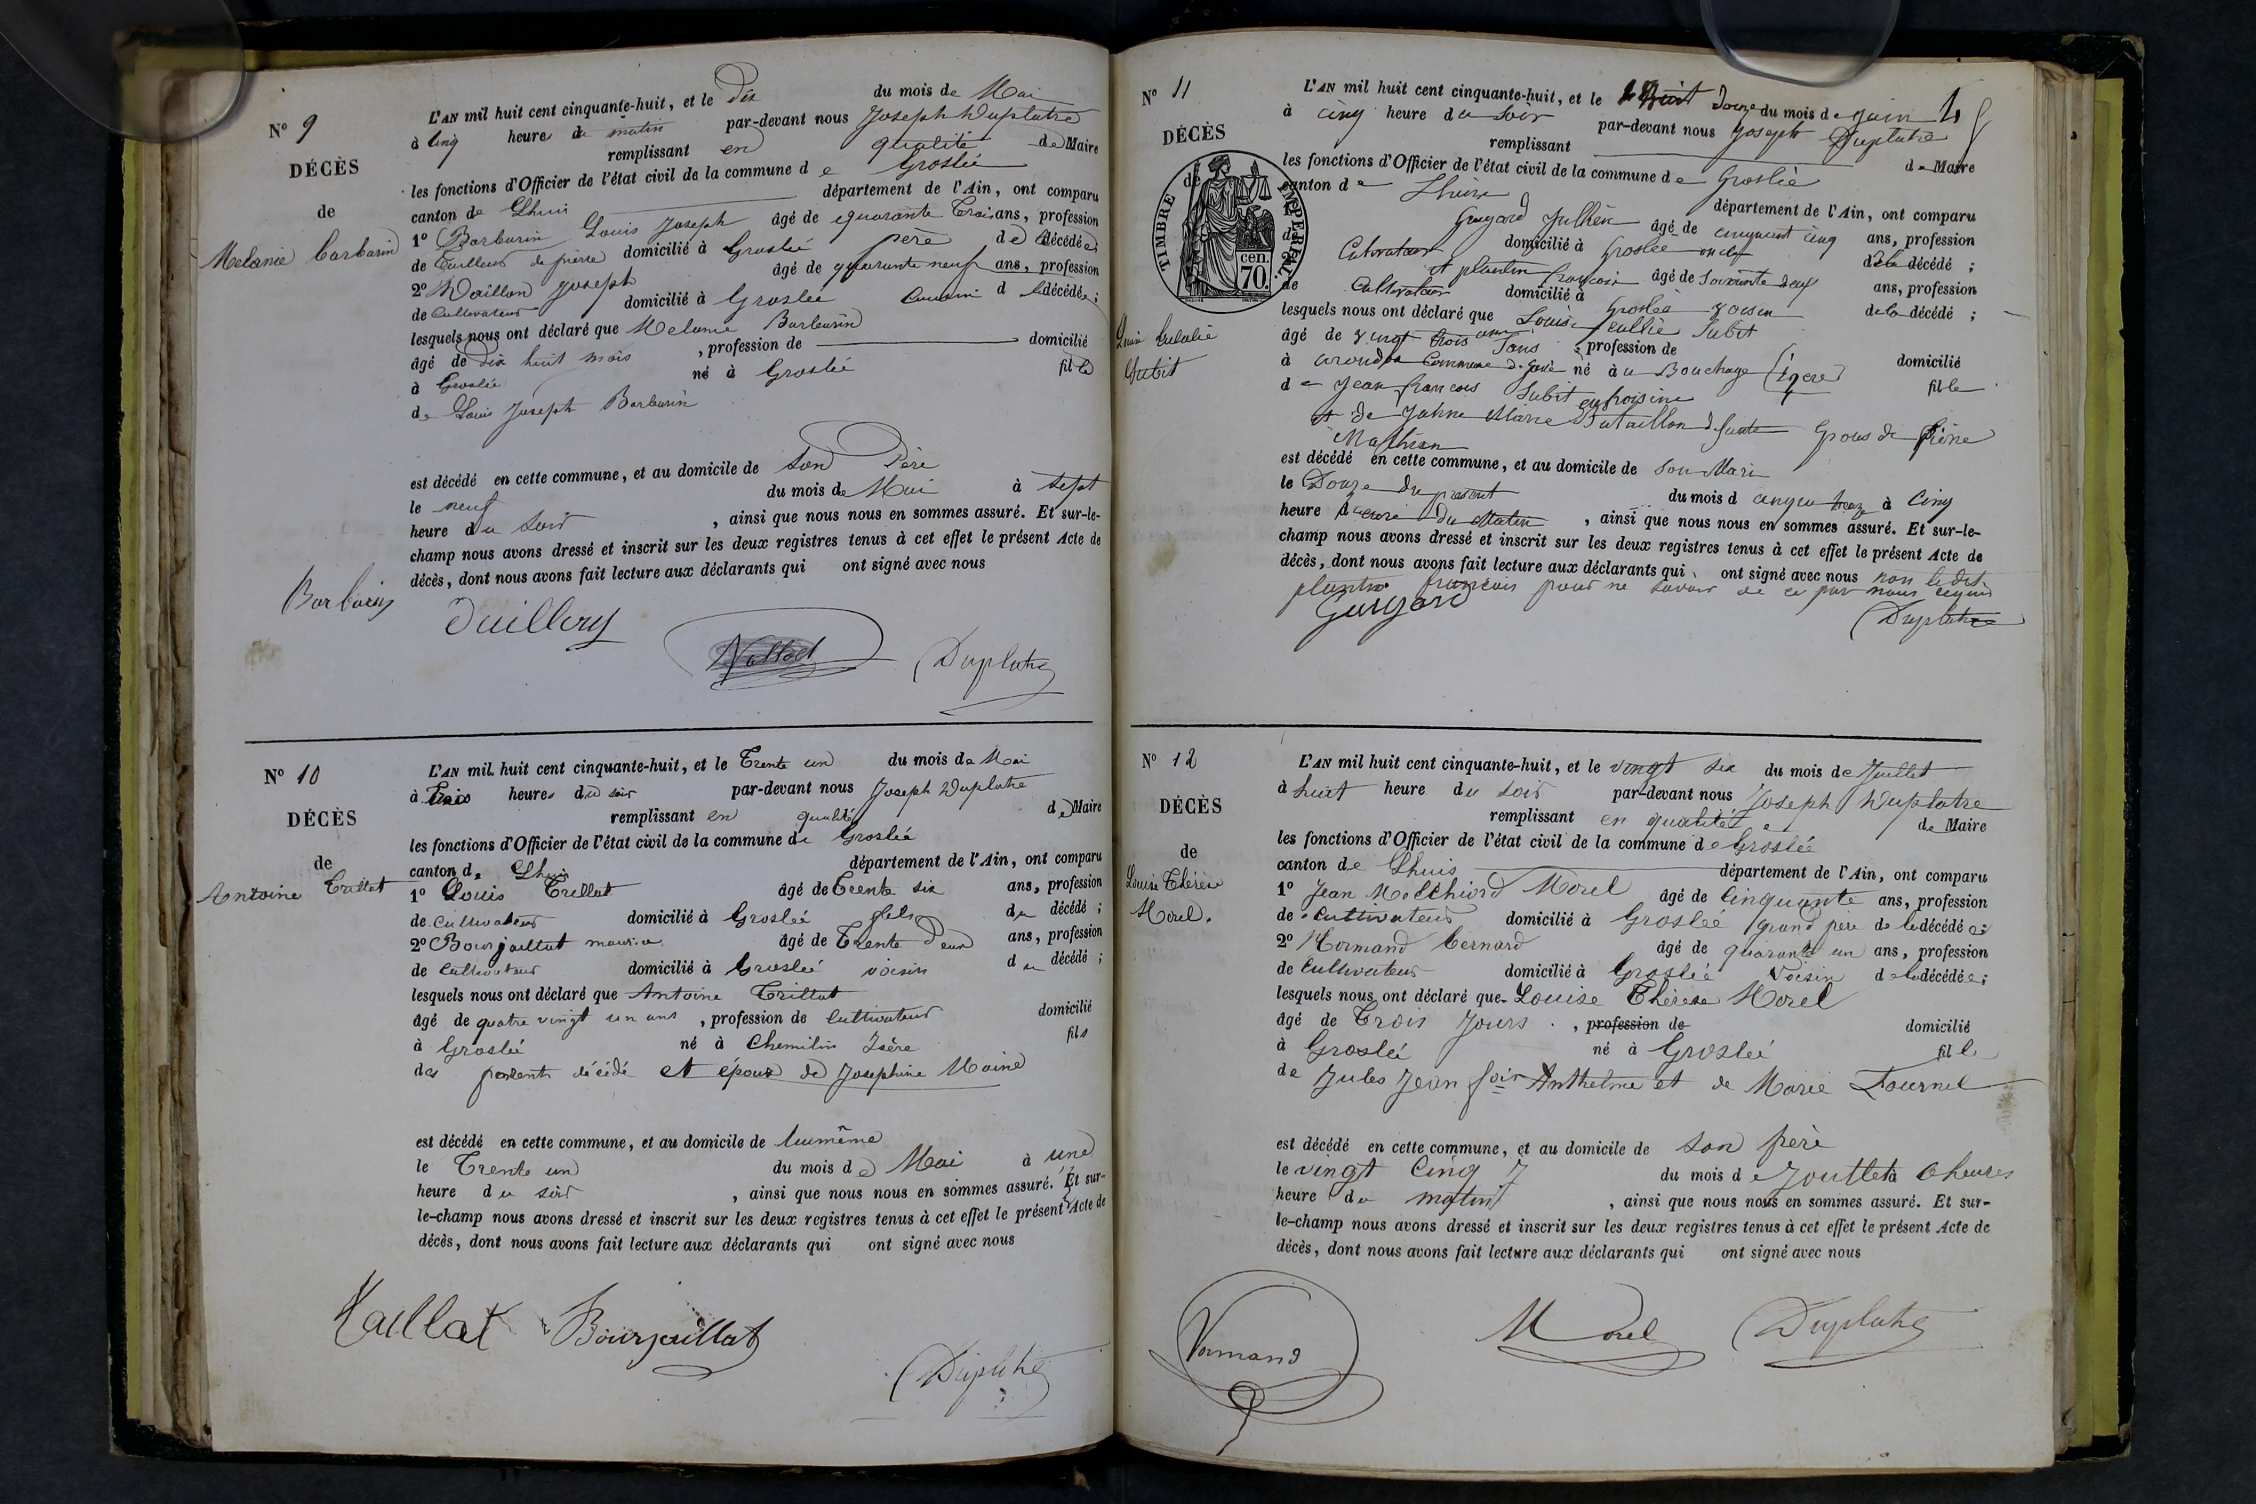 N° 9
DÉCÈS
de
Melanie Barbarin
L'AN mil huit cent cinquante-huit, et le dix du mois de Mai
à cinq heures du matin par-devant nous Joseph Duplatre
remplissant en qualité de Maire
les fonctions d'Officier de l'état civil de la commune de Groslée
canton de Lhuis département de l'Ain, ont comparu
1° Barbarin Louis Joseph âgé de quarante trois ans, profession
de tailleur de pierre domicilié à Groslée père de la décédée
2° Joseph âgé de quarante neuf ans, profession
de cultivateur domicilié à Groslée cousin d la décédée;
lesquels nous ont déclaré que Melanie Barbarin
âgé de dix huit mois, profession de domicilié
à Groslée né à Groslée fille
de Louis Joseph Barbarin
est décédé en cette commune, et au domicile de son Père
le neuf du mois de Mai à sept
heure du soir, ainsi que nous nous en sommes assuré. Et sur-le-
champ nous avons dressé et inscrit sur les deux registres tenus à cet effet le présent Acte de
décès, dont nous avons fait lecture aux déclarants qui ont signé avec nous
Barbarin
Duplatre
N° 10
DÉCÈS
de
Antoine Trillat
L'AN mil huit cent cinquante-huit, et le Trente un du mois de Mai
à Trois heures du soir par-devant nous Joseph Duplatre
remplissant en qualité de Maire
les fonctions d'Officier de l'état civil de la commune de Groslée
canton de Lhuis département de l'Ain, ont comparu
1° Louis Trillat âgé de Trente six ans, profession
de cultivateur domicilié à Groslée fils du décédé;
2° Bourjaillat maurice âgé de Trente Deux ans, profession
de cultivateur domicilié à Groslée voisin du décédé;
lesquels nous ont déclaré que Antoine Trillat
âgé de quatre vingt un ans, profession de Cultivateur domicilié
à Groslée né à Chemilin Isère fils
des parents décédé et époux de Josephine Moine
est décédé en cette commune, et au domicile de lui même
le Trente un du mois de Mai à une
heure du soir, ainsi que nous nous en sommes assuré. Et sur-
le-champ nous avons dressé et inscrit sur les deux registres tenus à cet effet le présent Acte de
décès, dont nous avons fait lecture aux déclarants qui ont signé avec nous
Bourjaillat
Duplatre
N° 11
DÉCÈS
de
TIMBRE IMPERIAL
70 cen.
Eulalie
Jubit
L'AN mil huit cent cinquante-huit, et le Douze du mois de juin
à cinq heure du soir par-devant nous joseph Duplatre
remplissant de Maire
les fonctions d'Officier de l'état civil de la commune de Groslée
canton de département de l'Ain, ont comparu
Guygard Jullien âgé de cinquant cinq ans, profession
domicilié à Groslée oncle de la décédé;
et plantin françois âgé de Soixante deux ans, profession
de domicilié à Groslée voisin de la décédé;
lesquels nous ont déclaré que Louise Jubit
âgé de vingt trois ans profession de domicilié
à commune de né à u Bouchage (isere) fille
de Jean francois Jubit
et de Marie Bataillon
Mathieu
est décédé en cette commune, et au domicile de son Mari
le Douze du présent du mois d à Cinq
heure du Matin, ainsi que nous nous en sommes assuré. Et sur-le-
champ nous avons dressé et inscrit sur les deux registres tenus à cet effet le présent Acte de
décès, dont nous avons fait lecture aux déclarants qui ont signé avec nous non ledit
francois pour ne savoir de ce par nous
Guygard
Duplatre
N° 12
DÉCÈS
de
Louise Thérèse
Morel.
L'AN mil huit cent cinquante-huit, et le vingt six du mois de Juillet
à huit heure du soir par-devant nous Joseph Duplatre
remplissant en qualité de Maire
les fonctions d'Officier de l'état civil de la commune de Groslée
canton de Lhuis département de l'Ain, ont comparu
1° Jean Melchiord Morel âgé de Cinquante ans, profession
de cultivateur domicilié à Groslée grand père de la décédée;
2° Normand bernard âgé de quarante un ans, profession
de cultivateur domicilié à Groslée Voisin de la décédée;
lesquels nous ont déclaré que Louise Thérèse Morel
âgé de Trois jours, profession de domicilié
à Groslée né à Groslée fille
de Jules Jean fois Anthelme et de Marie Fournel
est décédé en cette commune, et au domicile de son père
le vingt cinq du mois de Jouillet à heures
heure du matin, ainsi que nous nous en sommes assuré. Et sur-
le-champ nous avons dressé et inscrit sur les deux registres tenus à cet effet le présent Acte de
décès, dont nous avons fait lecture aux déclarants qui ont signé avec nous
Normand
Morel
Duplatre